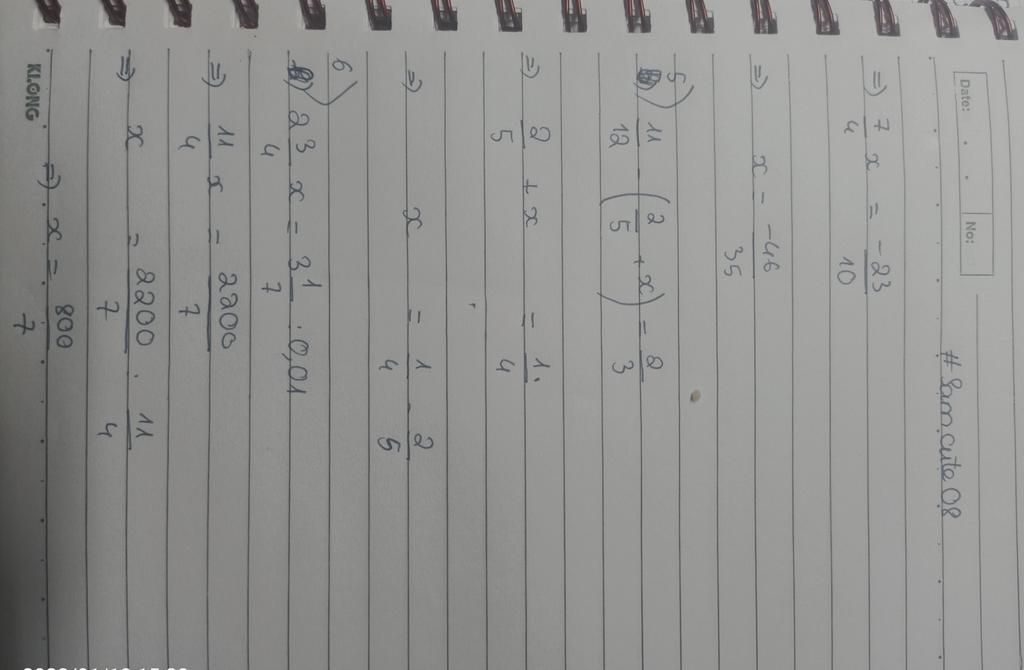 Date:
No:
# Sam.cute08
=) 7/4 x = -23/10
=) x = -46/35
5)
11/12 - (2/5 + x) = 2/3
=) 2/5 + x = 1/4.
=) x = 1/4 - 2/5
6)
2 3/4 x = 3 1/7 : 0,01
=) 11/4 x = 2200/7
=) x = 2200/7 . 11/4
=) x = 800/7
KLONG